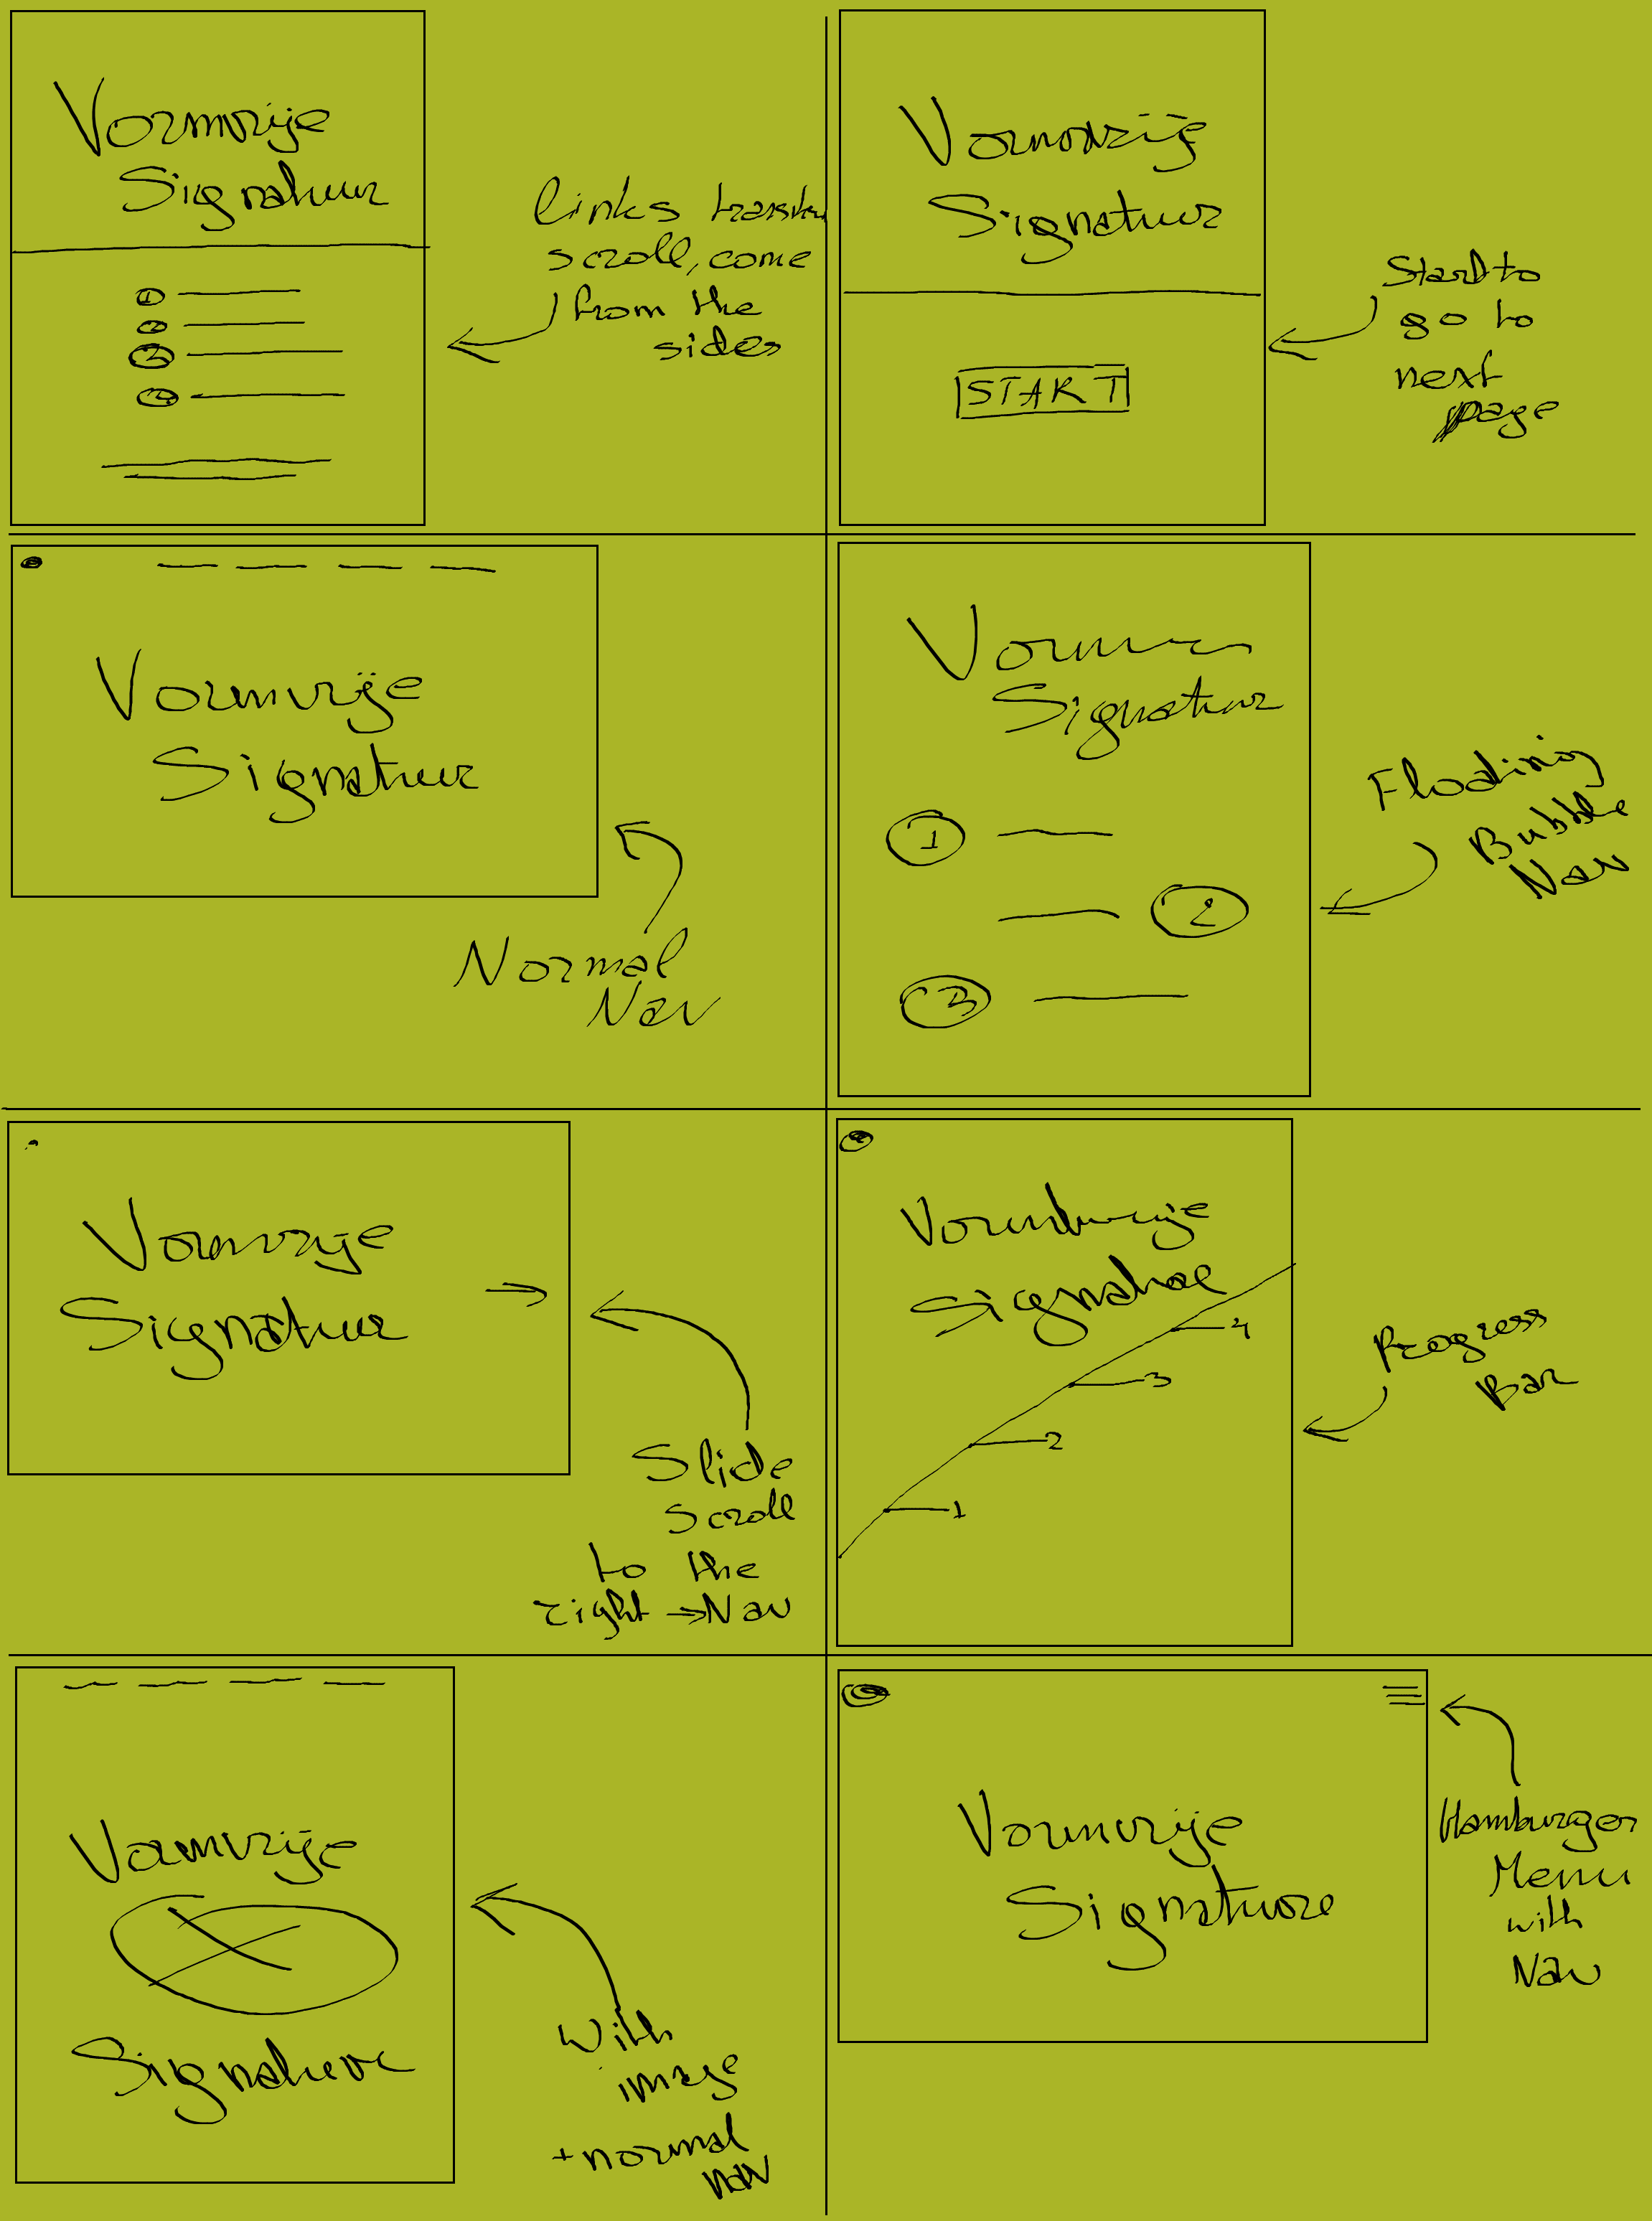 Vormvrije
Signatuur
①
②
③
④
links transition
scroll, come
from the
sides
Vormvrije
Signatuur
START
Start to
go to
next
page
Vormvrije
Signatuur
Normal
Nav
Signatuur
1
2
3
Floating
Bubble
Nav
Vormvrije
Signatuur
→
Slide
scroll
to the
right → Nav
Vormvrije
Signature
4
3
2
1
Progress
Bar
Vormvrije
Signature
With
image
+ normal
nav
Vormvrije
Signature
Hamburger
Menu
with
Nav